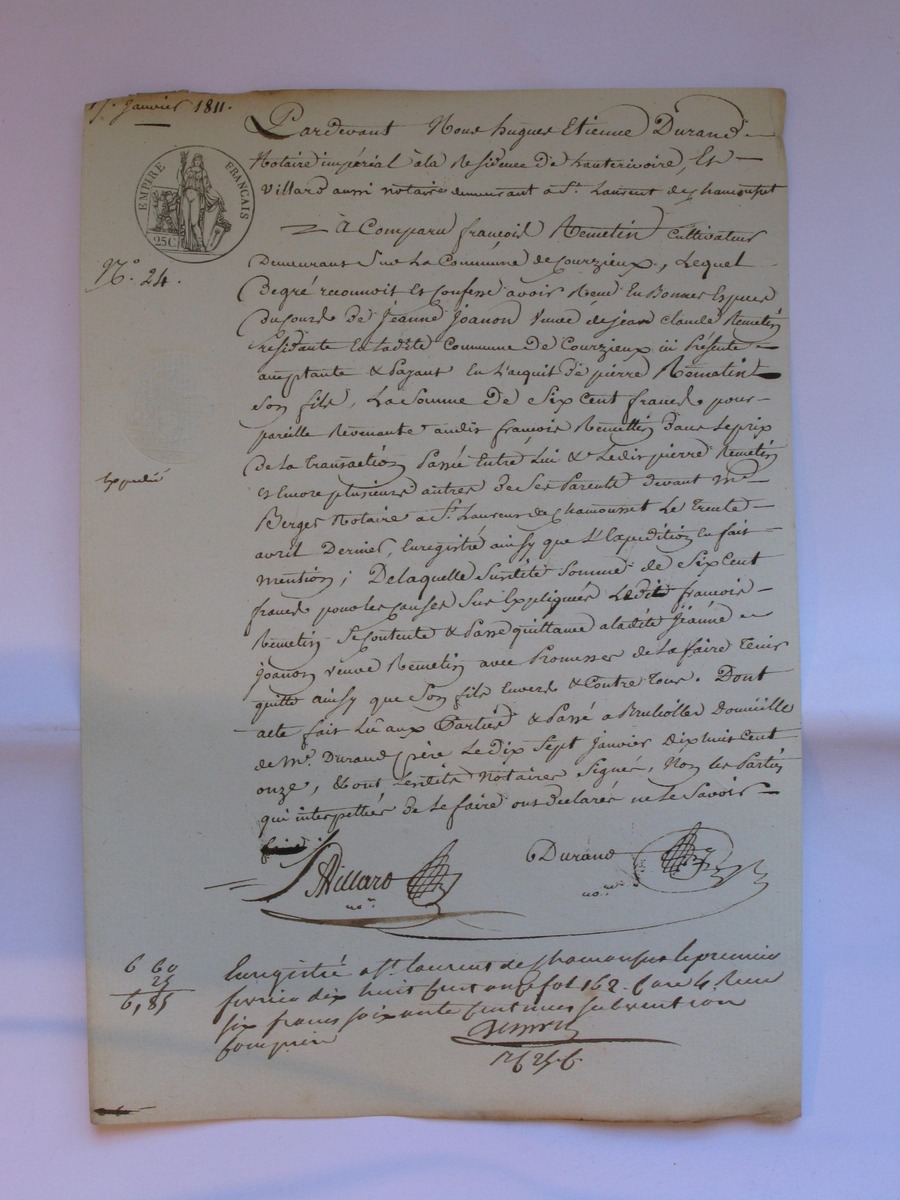 17. Janvier 1811.
Pardevant Nous hugues Etienne Durand
Notaire impérial à la Residence de hauterivoire, Et
Villard aussi notaire demeurant a St. Laurent de chamousset
EMPIRE FRANÇAIS
25C
N.o 24.
à Comparu françois Remetin Cultivateur
Demeurant Sur La Commune de Courzieux, Lequel
De gré reconnoit Et Confesse avoir Recu En Bonnes Espèces
Du Cours De Jéanne Joanon veuve de jean claude Remetin
Résidante En ladite Commune De Courzieux ici Présente
acceptante & Payant En L'acquit De pierre Rematin
Son fils, La Somme De Six Cent francs pour
pareille Revenante audit françois Remettin Dans Le prix
De La transaction Passée Entre Lui & Ledit pierre Remetin
et Encore plusieurs autres de Ses Parents devant me
Berges Notaire a St. Laurens de chamousset Le trente
avril Dernier, Enregistré ainsy que L'Expedition En fait
mention; De laquelle Susdite Somme de Six Cent
francs pour les causes Sus Expliquées Ledit francois
Remetin Se Contente & Passe quittance a ladite Jéanne
Joanon veuve Remetin avec Promesse de La faire Tenir
quitte ainsy que Son fils Envers & Contre Tous. Dont
acte fait Lû aux Parties & Passé a Brullolles Domicille
de Me. Durand père Le Dix Sept Janvier Dix huit Cent
onze, & ont Lesdits Notaires Signés, Non les Parties
qui interpellées De Le faire ont Declarés ne Le Savoir
faire
Expedié
Villard
no.re
Durand
no.re
6 60
25
6,85
Enregistré a St. laurent de chamousset le premier
fevrier dix huit Cent onze fol 162. C. are 4. Recu
six francs soixante Centimes subvention
Comprise